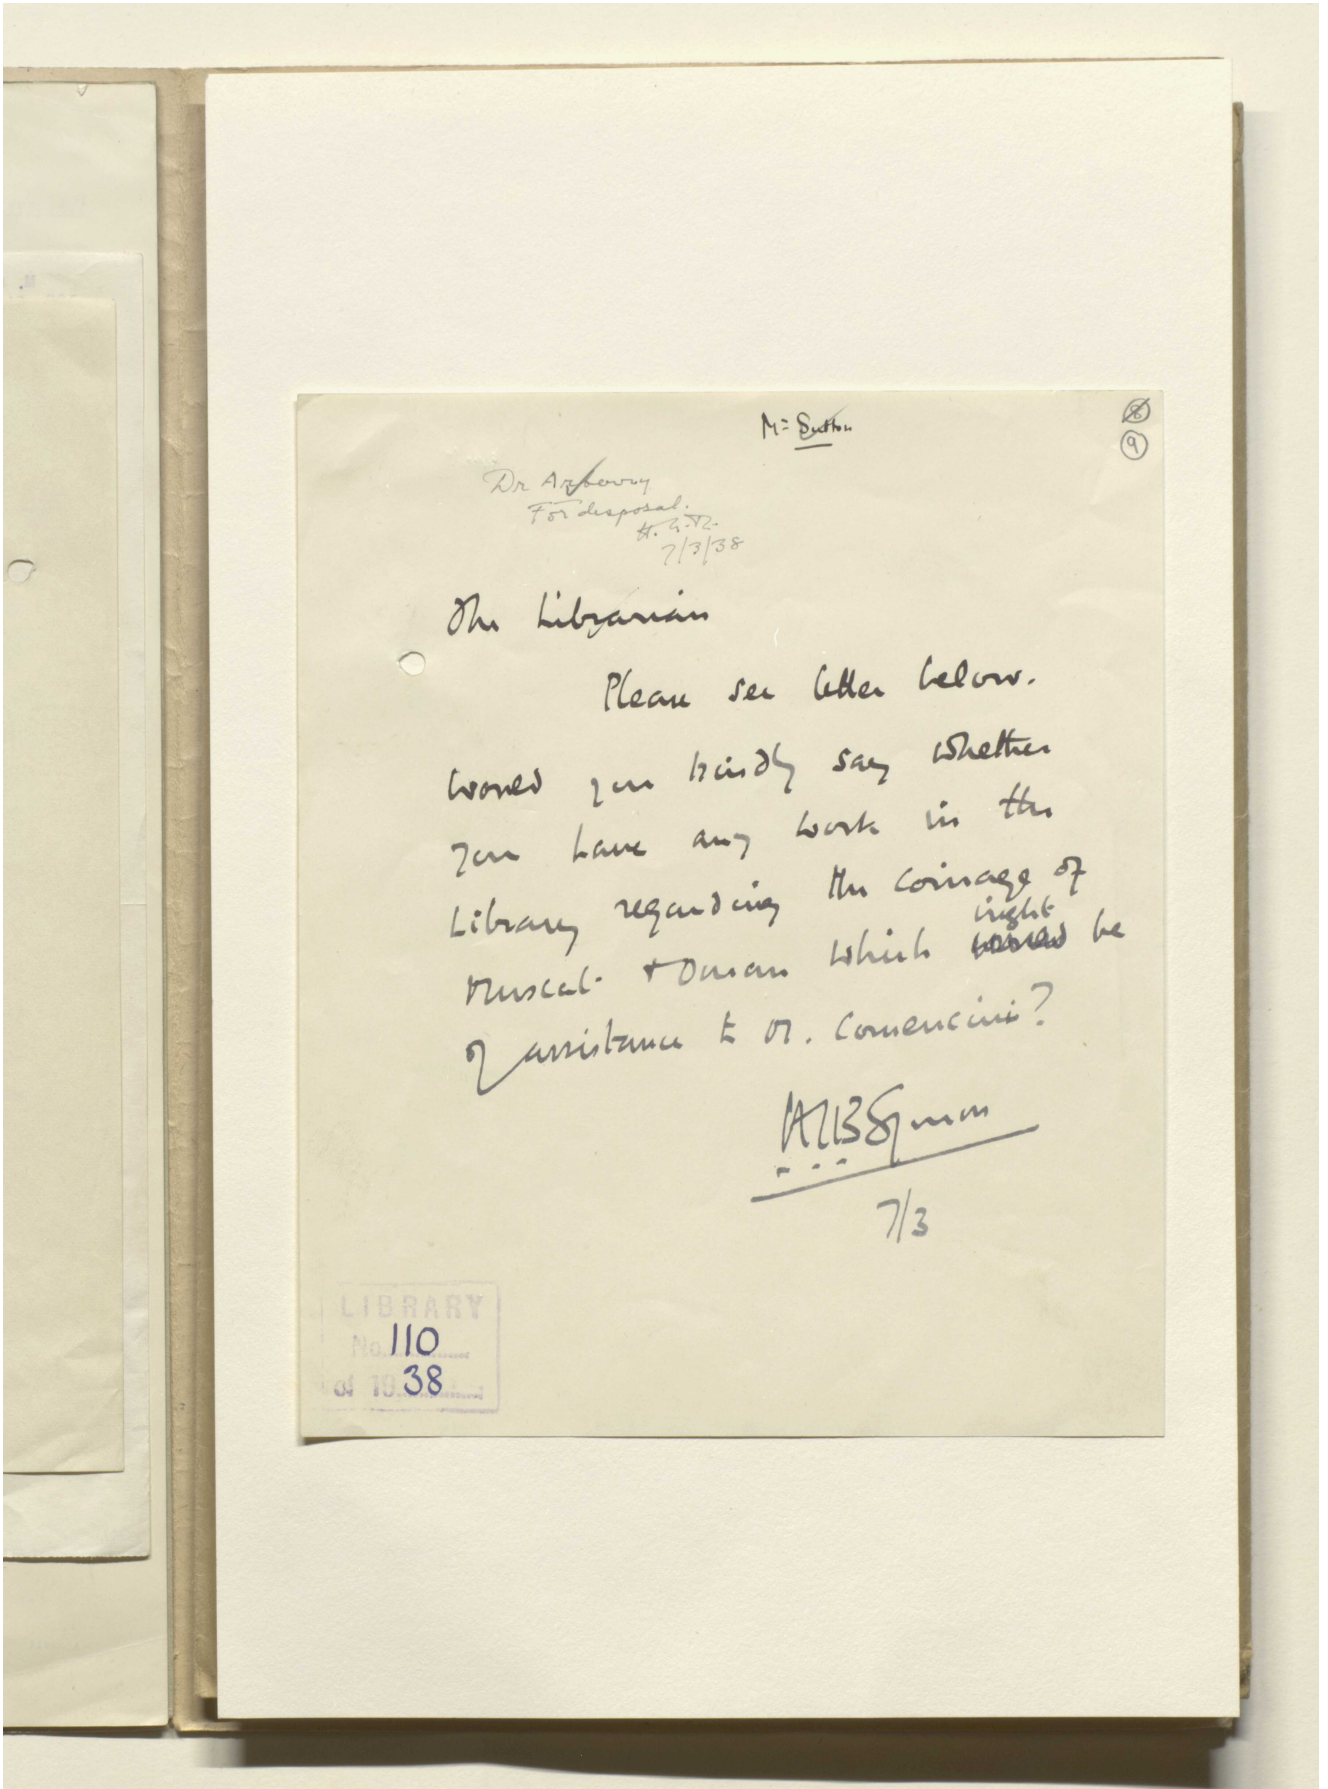 Mr Sutton
8
9
Dr Arberry
For disposal.
H. G. R.
7/3/38
The Librarian
Please see letter below.
Would you kindly say whether
you have any work in the
Library regarding the coinage of
might
Muscat & Oman which would be
of assistance to M. Comencini?
7/3
LIBRARY
No. 110
of 1938